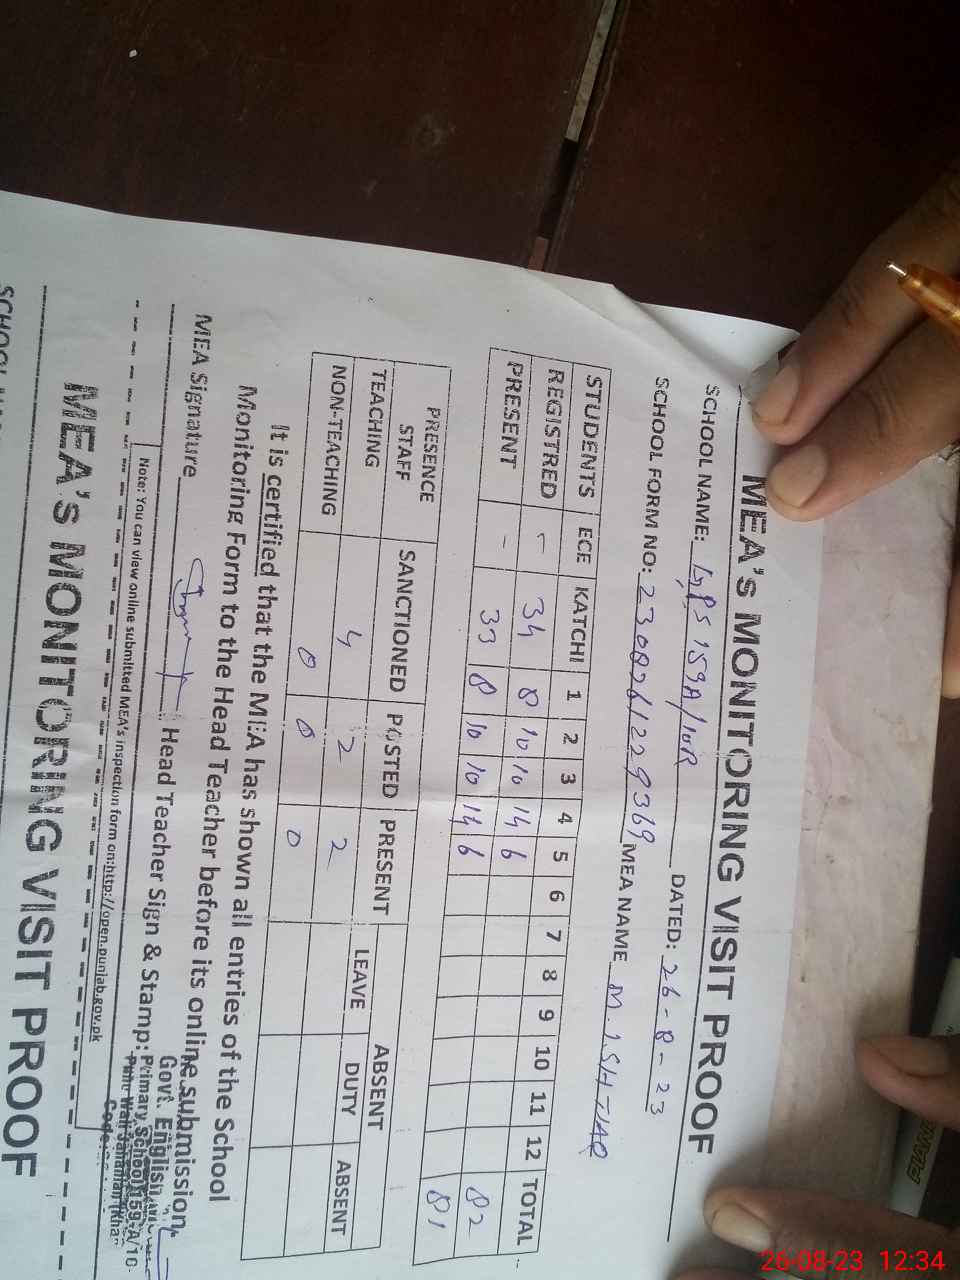 MEA's MONITORING VISIT PROOF
SCHOOL NAME: GPS 159A/10R DATED: 26-8-23
SCHOOL FORM NO: MEA NAME M. ISHTIAR
STUDENTS ECE KATCHI 1 2 3 4 5 6 7 8 9 10 11 12 TOTAL
REGISTRED - 34 8 10 10 14 6 82
PRESENT - 33 8 10 10 14 6 81
PRESENCE STAFF SANCTIONED POSTED PRESENT ABSENT
LEAVE DUTY ABSENT
TEACHING 4 2 2
NON-TEACHING 0 0 0
It is certified that the MEA has shown all entries of the School
Monitoring Form to the Head Teacher before its online submission
MEA Signature Head Teacher Sign & Stamp:
Govt. English
Primary School 159-A/10-
Jahanian (Kha
Code:
Note: You can view online submitted MEA's inspection form on:http://open.punjab.gov.pk
MEA's MONITORING VISIT PROOF
SCHOOL
26-08-23 12:34